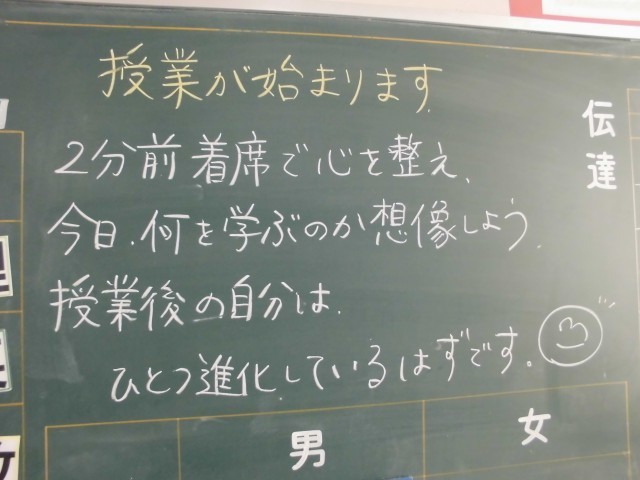 授業が始まります
2分前着席で心を整え、
今日、何を学ぶのか想像しよう。
授業後の自分は、
ひとつ進化しているはずです。
伝達
男
女